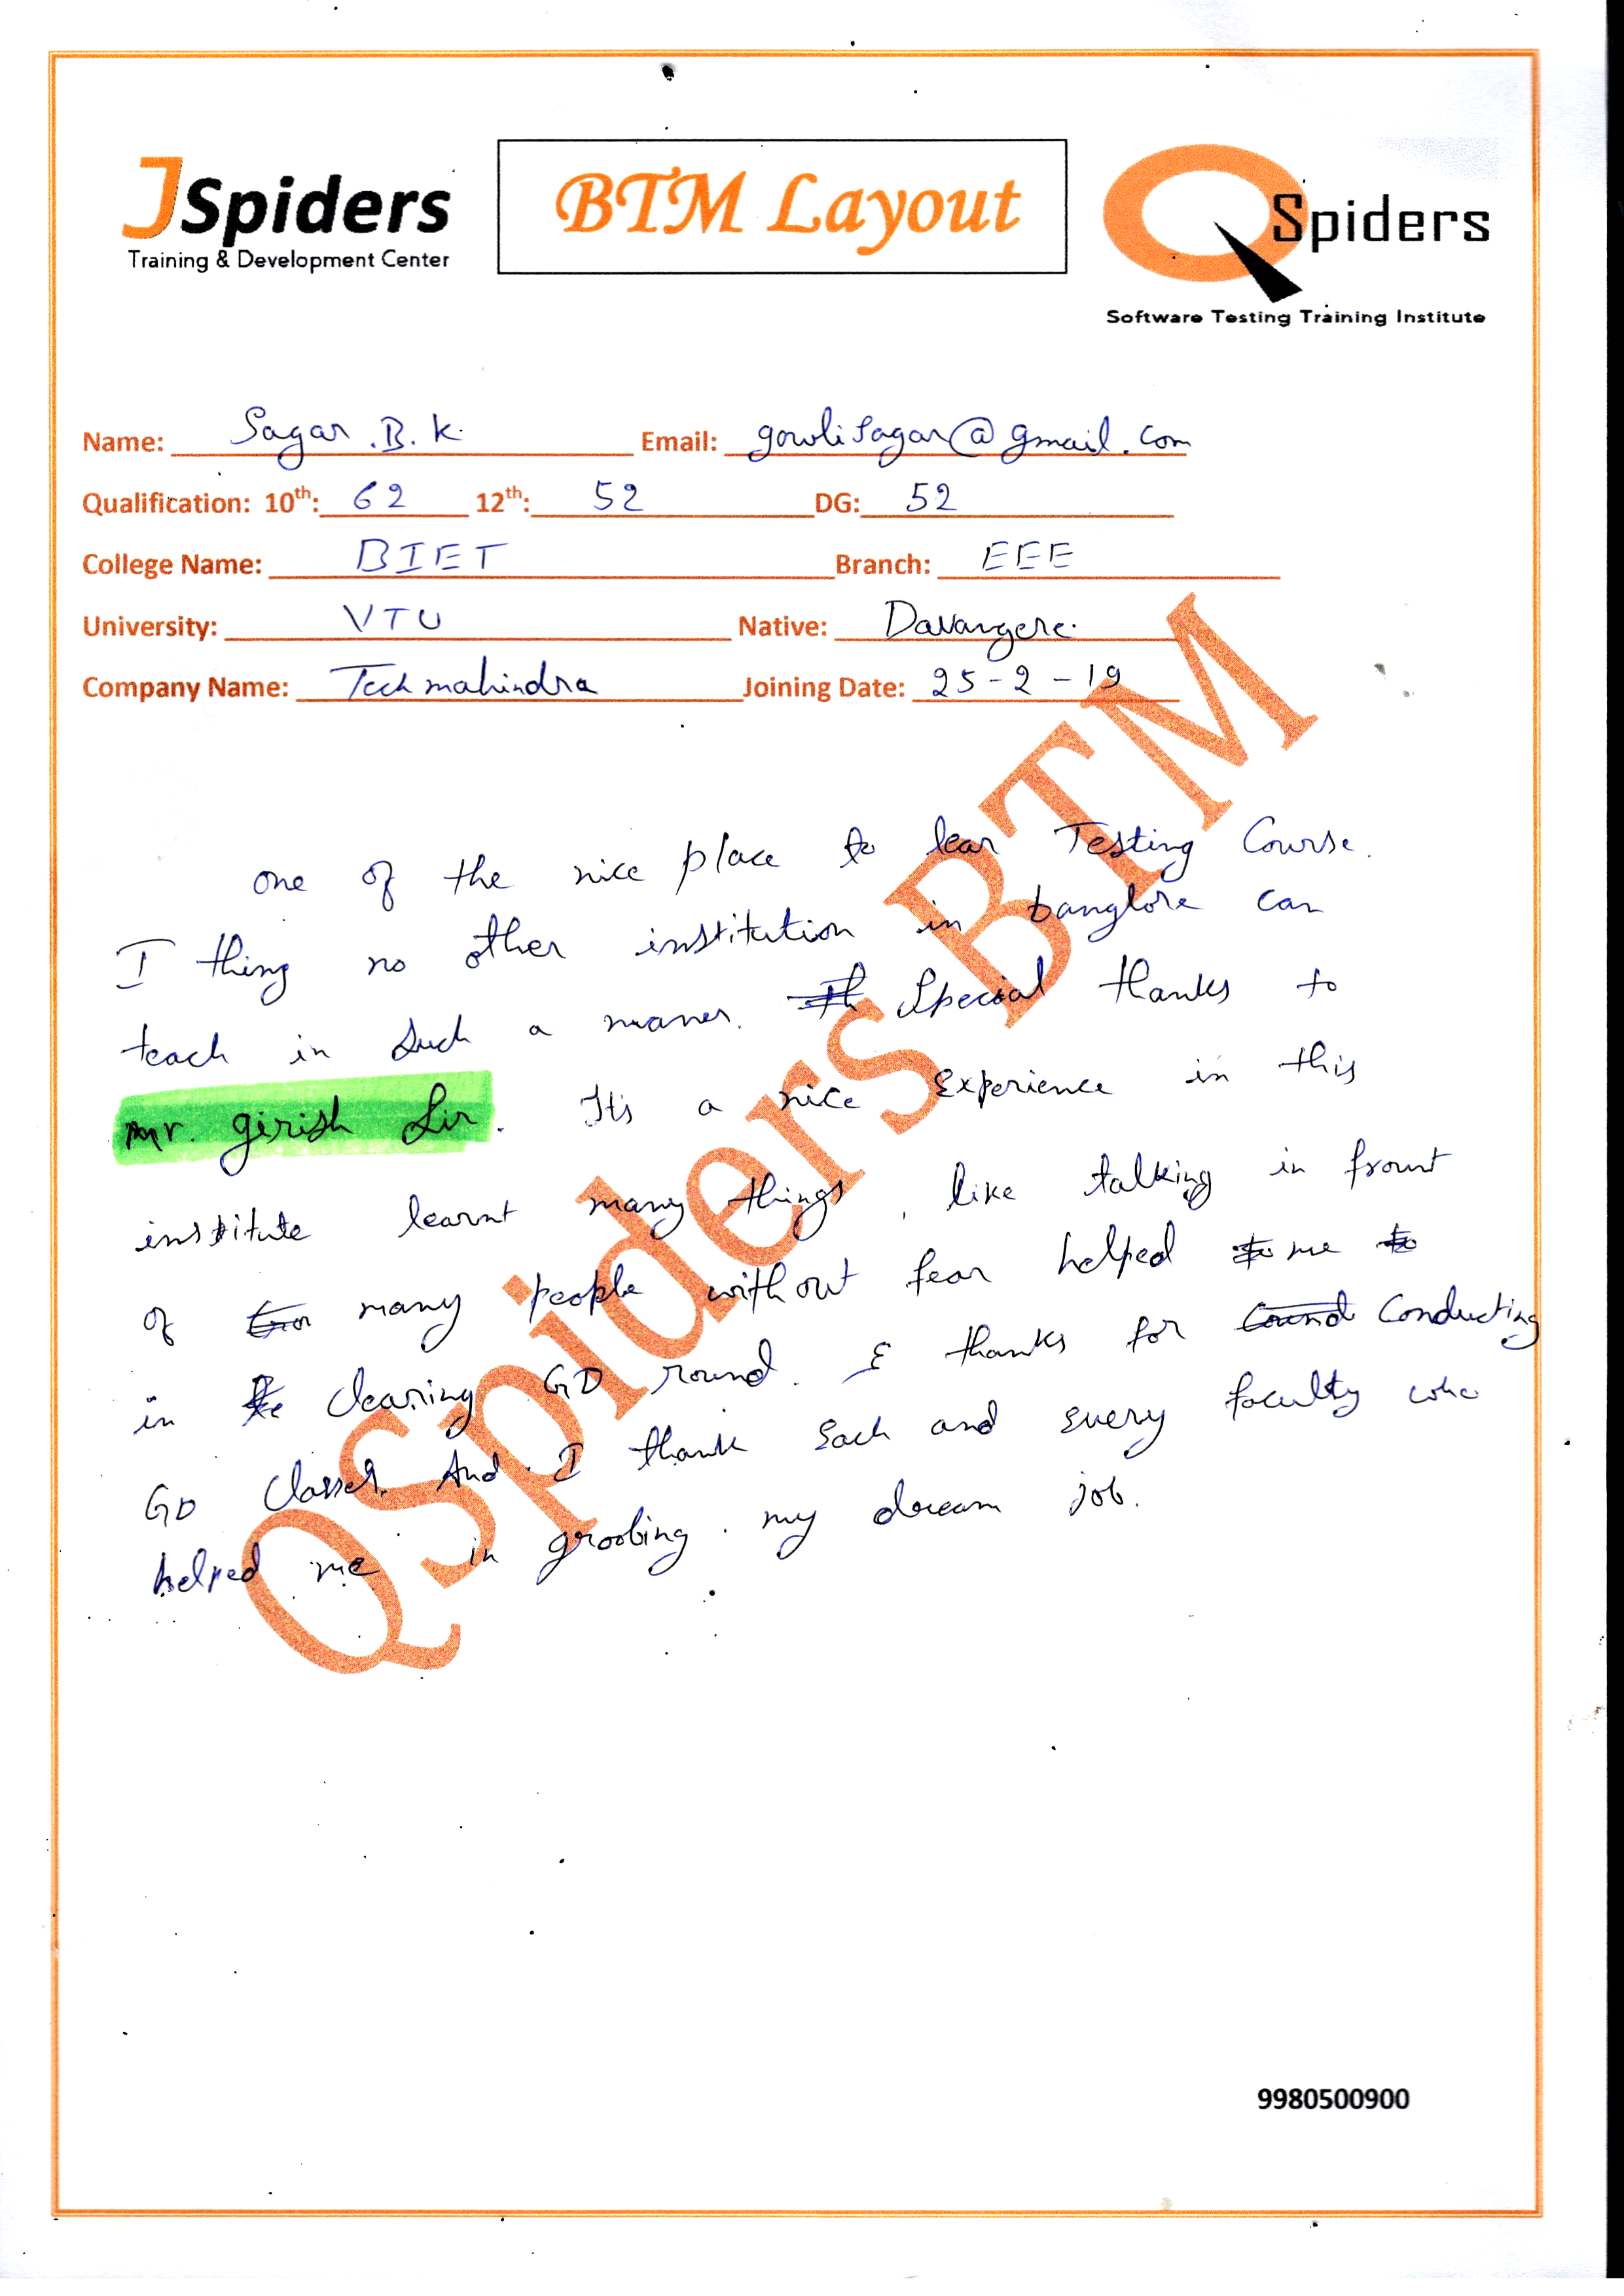 JSpiders
Training & Development Center
BTM Layout
QSpiders
Software Testing Training Institute
Name: Sagar .B. K. Email: gowlisagar@gmail.com
Qualification: 10th: 62 12th: 52 DG: 52
College Name: BIET Branch: EEE
University: VTU Native: Davangere.
Company Name: Tech mahindra Joining Date: 25-2-19
one of the nice place to lear Testing Course.
I thing no other institution in banglore can
teach in such a maner. Special thanks to
mr. girish Sir. It's a nice Experience in this
institute learnt many things, like talking in frount
of many people without fear helped me
in clearing GD round. & thanks for Conducting
GD Classes. And I thank Each and Every faculty who
helped me in groobing my dream job.
QSpiders BTM
9980500900